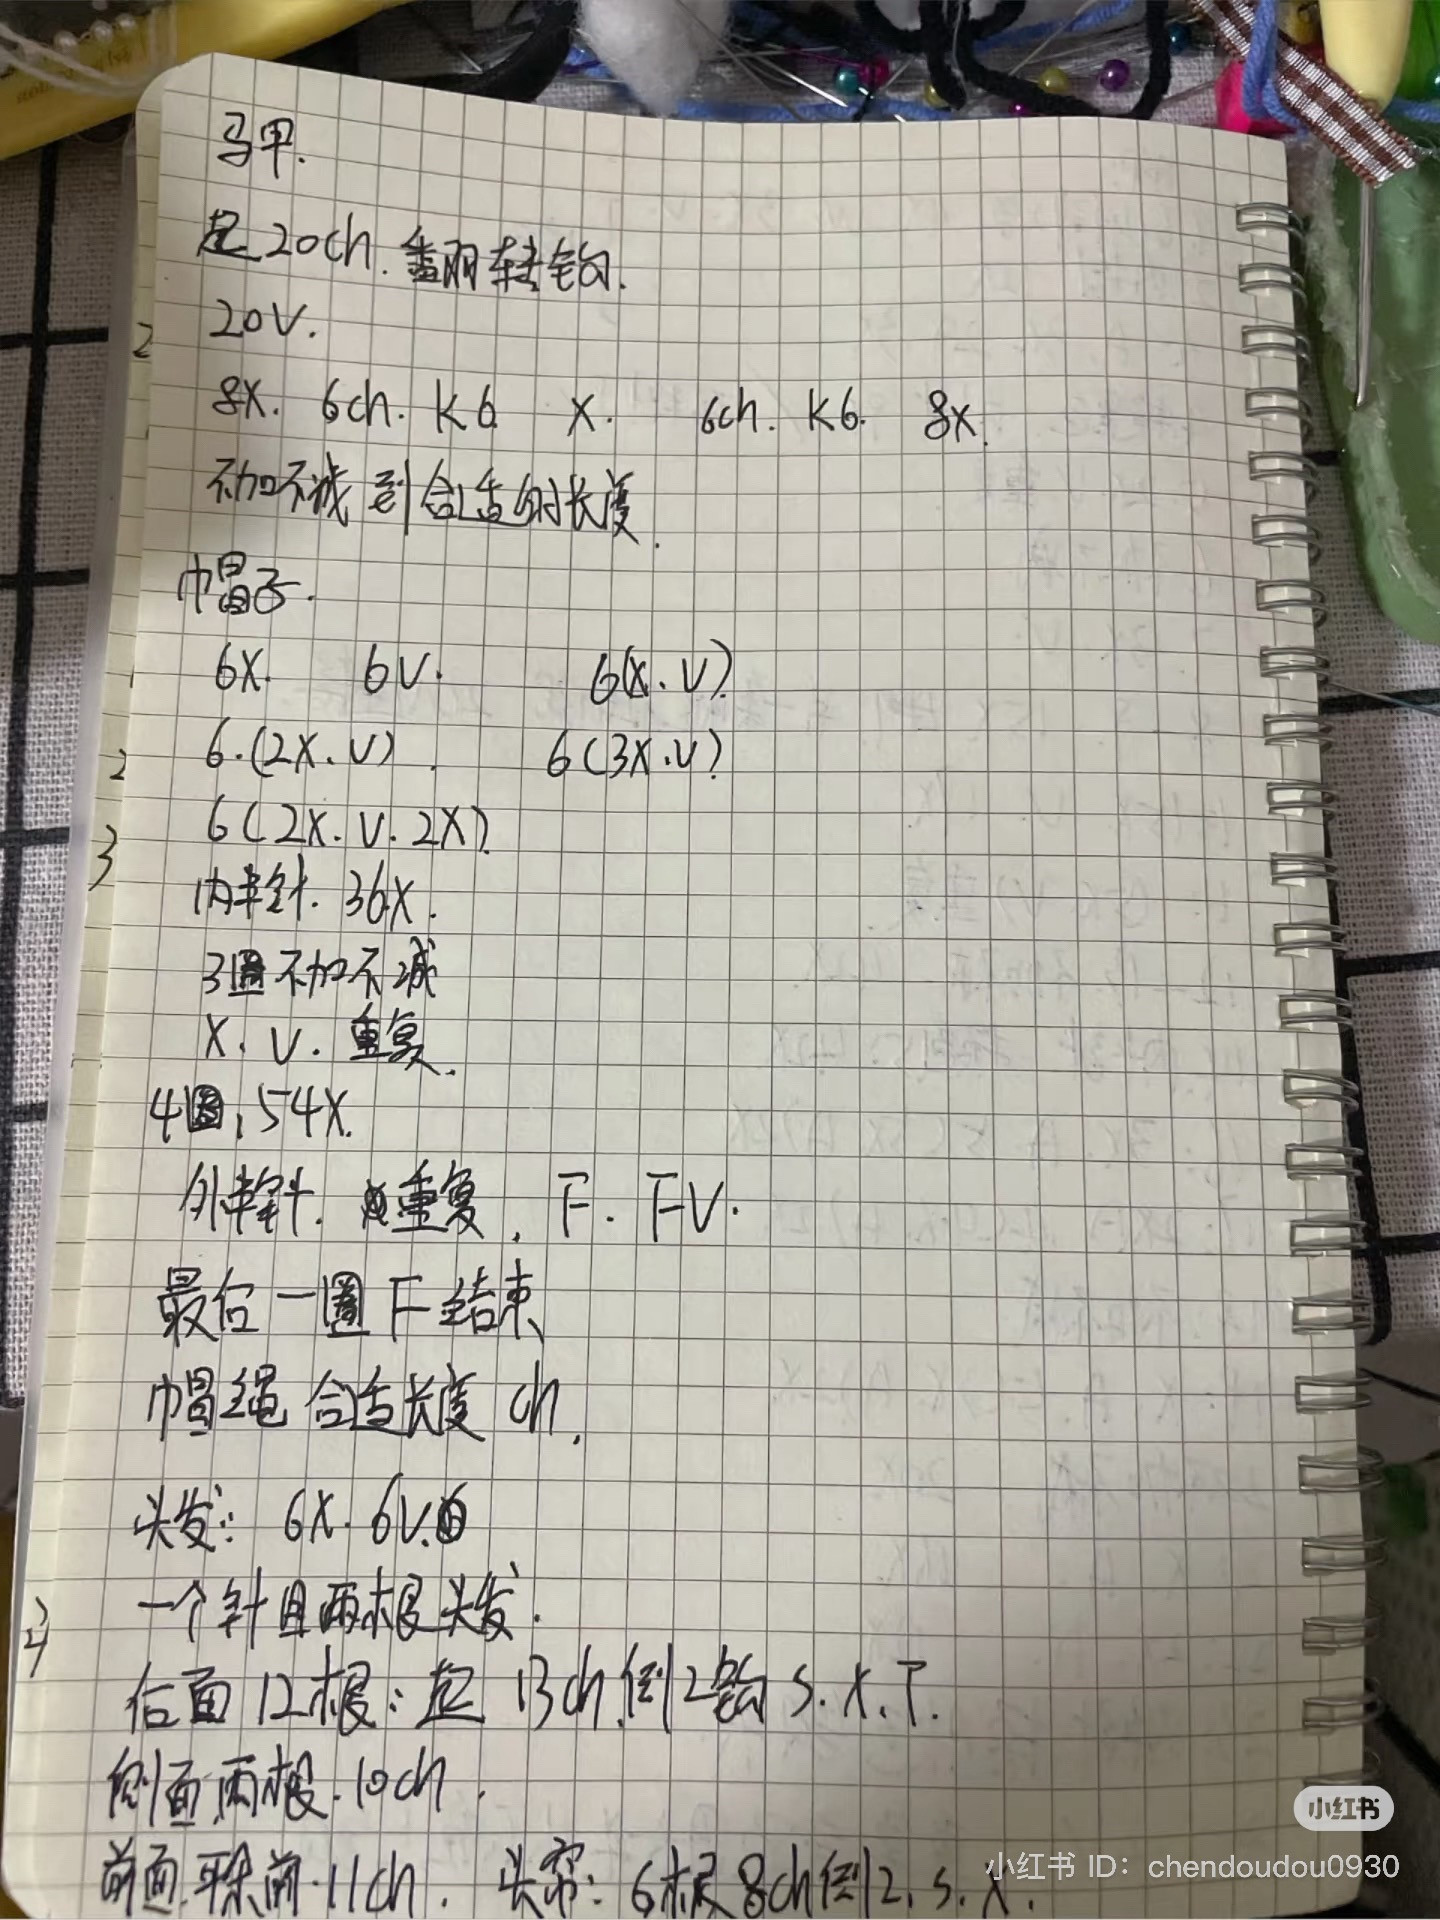 马甲.
起20ch.番丽转钩.
20V.
8X. 6ch. K6 X. 6ch. K6. 8X.
不加不减 到合适的长度.
帽子.
6X. 6V. 6(X.V).
6.(2X.V). 6(3X.V)
6(2X.V.2X).
内半针.36X.
3圈不加不减
X.V.重复.
4圈,54X.
外半针. 重复. F. FV.
最后一圈F结束
帽绳 合适长度 ch.
头发: 6X.6V.
一个针目两根头发.
后面12根:起13ch.倒2钩 S.X.T.
侧面两根.10ch.
前面 前.11ch. 头帘:6根8ch倒2.S.X.
2
2
3
4
小红书
小红书 ID: chendoudou0930